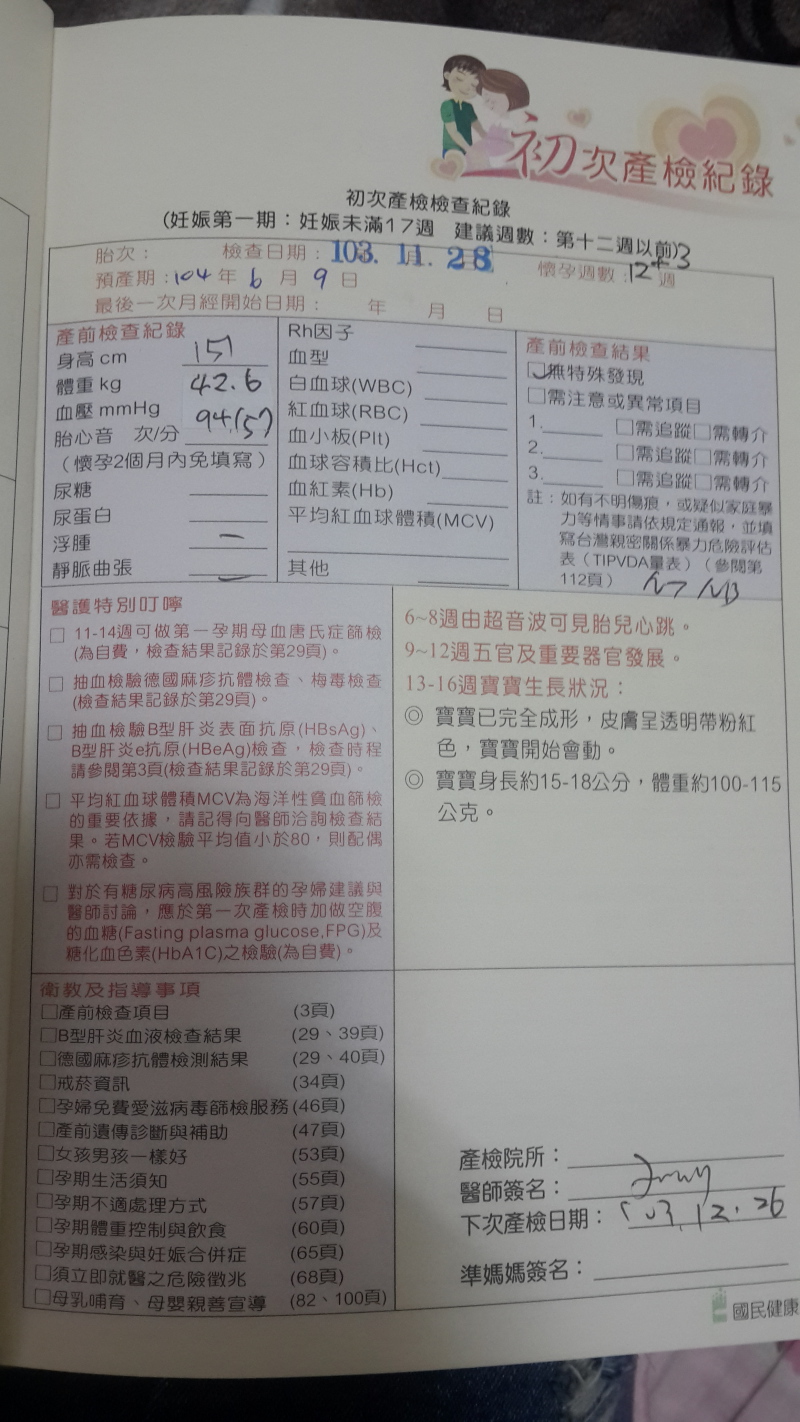 初次產檢紀錄
初次產檢檢查紀錄
(妊娠第一期：妊娠未滿17週 建議週數：第十二週以前)
胎次： 檢查日期：103. 11. 28 懷孕週數：12+3 週
預產期：104 年 6 月 9 日
最後一次月經開始日期： 年 月 日
產前檢查紀錄
身高cm 151
體重kg 42.6
血壓mmHg 94/57
胎心音 次/分
（懷孕2個月內免填寫）
尿糖
尿蛋白
浮腫 —
靜脈曲張 —
Rh因子
血型
白血球(WBC)
紅血球(RBC)
血小板(Plt)
血球容積比(Hct)
血紅素(Hb)
平均紅血球體積(MCV)
其他
產前檢查結果
☑無特殊發現
□需注意或異常項目
1. □需追蹤□需轉介
2. □需追蹤□需轉介
3. □需追蹤□需轉介
註：如有不明傷痕，或疑似家庭暴
力等情事請依規定通報，並填
寫台灣親密關係暴力危險評估
表（TIPVDA量表）（參閱第
112頁）
醫護特別叮嚀
□ 11-14週可做第一孕期母血唐氏症篩檢
(為自費，檢查結果記錄於第29頁)。
□ 抽血檢驗德國麻疹抗體檢查、梅毒檢查
(檢查結果記錄於第29頁)。
□ 抽血檢驗B型肝炎表面抗原(HBsAg)、
B型肝炎e抗原(HBeAg)檢查，檢查時程
請參閱第3頁(檢查結果記錄於第29頁)。
□ 平均紅血球體積MCV為海洋性貧血篩檢
的重要依據，請記得向醫師洽詢檢查結
果。若MCV檢驗平均值小於80，則配偶
亦需檢查。
□ 對於有糖尿病高風險族群的孕婦建議與
醫師討論，應於第一次產檢時加做空腹
的血糖(Fasting plasma glucose,FPG)及
糖化血色素(HbA1C)之檢驗(為自費)。
6~8週由超音波可見胎兒心跳。
9~12週五官及重要器官發展。
13-16週寶寶生長狀況：
◎ 寶寶已完全成形，皮膚呈透明帶粉紅
色，寶寶開始會動。
◎ 寶寶身長約15-18公分，體重約100-115
公克。
衛教及指導事項
□產前檢查項目 (3頁)
□B型肝炎血液檢查結果 (29、39頁)
□德國麻疹抗體檢測結果 (29、40頁)
□戒菸資訊 (34頁)
□孕婦免費愛滋病毒篩檢服務 (46頁)
□產前遺傳診斷與補助 (47頁)
□女孩男孩一樣好 (53頁)
□孕期生活須知 (55頁)
□孕期不適處理方式 (57頁)
□孕期體重控制與飲食 (60頁)
□孕期感染與妊娠合併症 (65頁)
□須立即就醫之危險徵兆 (68頁)
□母乳哺育、母嬰親善宣導 (82、100頁)
產檢院所：
醫師簽名：
下次產檢日期：103.12.26
準媽媽簽名：
國民健康